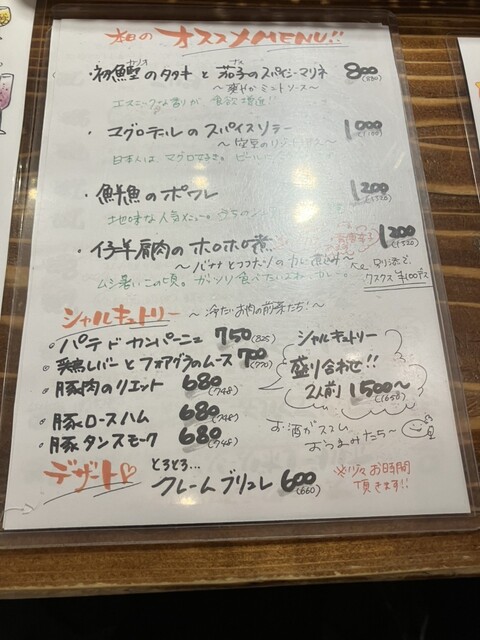 本日の オススメMENU!!
・初鰹のタタキと茄子のスパイシーマリネ 800 (880)
カツオ ナス
〜爽やかミントソース〜
エスニックな香りが食欲増進!!
・マグロテールのスパイスソテー 1000 (1100)
日本人は、マグロ好き。ビール
・鮮魚のポワレ 1200
地味な人気メニュー。うちの
・仔羊肩肉のホロホロ煮 1200
〜バナナとココナッツのカレー煮込み〜
別添で
クスクス ¥100です
ムシ暑いこの頃。ガッツリ食べたいよねーカレー。
シャルキュトリー 〜冷たいお肉の前菜たち!〜
・パテ ド カンパーニュ 750 (825)
・鶏レバーとフォアグラのムース 700 (770)
・豚肉のリエット 680 (748)
・豚ロースハム 680 (748)
・豚タンスモーク 680 (748)
シャルキュトリー
盛り合わせ!!
2人前 1500〜
(1650)
お酒がススム
おつまみたち〜
デザート♡ とろとろ… クレームブリュレ 600 (660)
お時間
頂きます!!